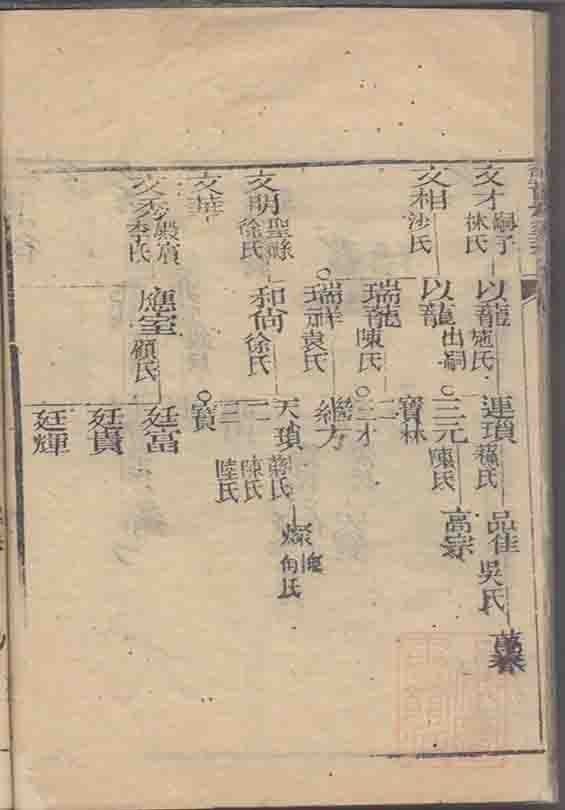 文才
林氏
嗣子
文相
沙氏
文明
徐氏
聖縣
文華
李氏
以龍
施氏
以龍
出嗣
瑞龍
陳氏
瑞祥
袁氏
和尚
徐氏
應室
顧氏
連瑣
蘇氏
三元
陳氏
寶林
二
三才
繼方
天瑣
蔣氏
二
陳氏
三
陸氏
寶
廷富
廷貴
廷輝
品佳
吳氏
高宗
燦
向氏
萬春